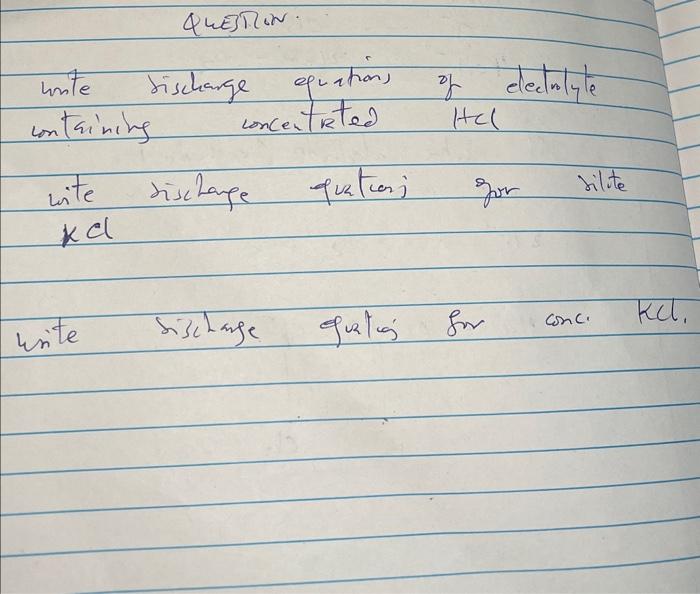 QUESTION.
write discharge equations of electrolyte
containing concentrated HCl
write discharge equations for dilute
KCl
write discharge equations for conc. KCl.